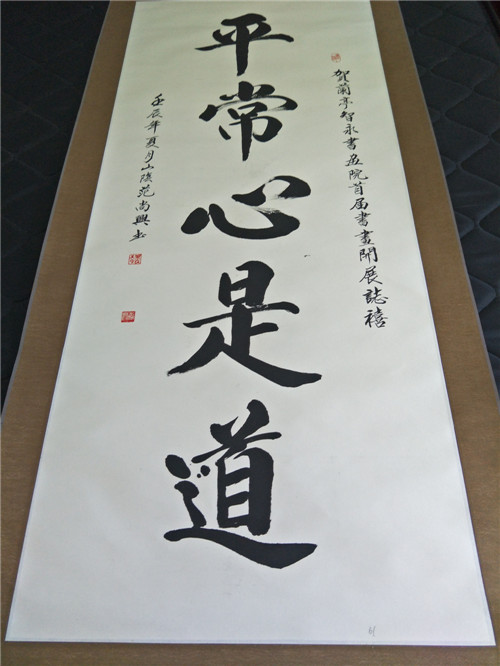 賀蘭亭智永書画院首届書畫開展誌禧
平常心是道
壬辰年夏月山陰范尚興书